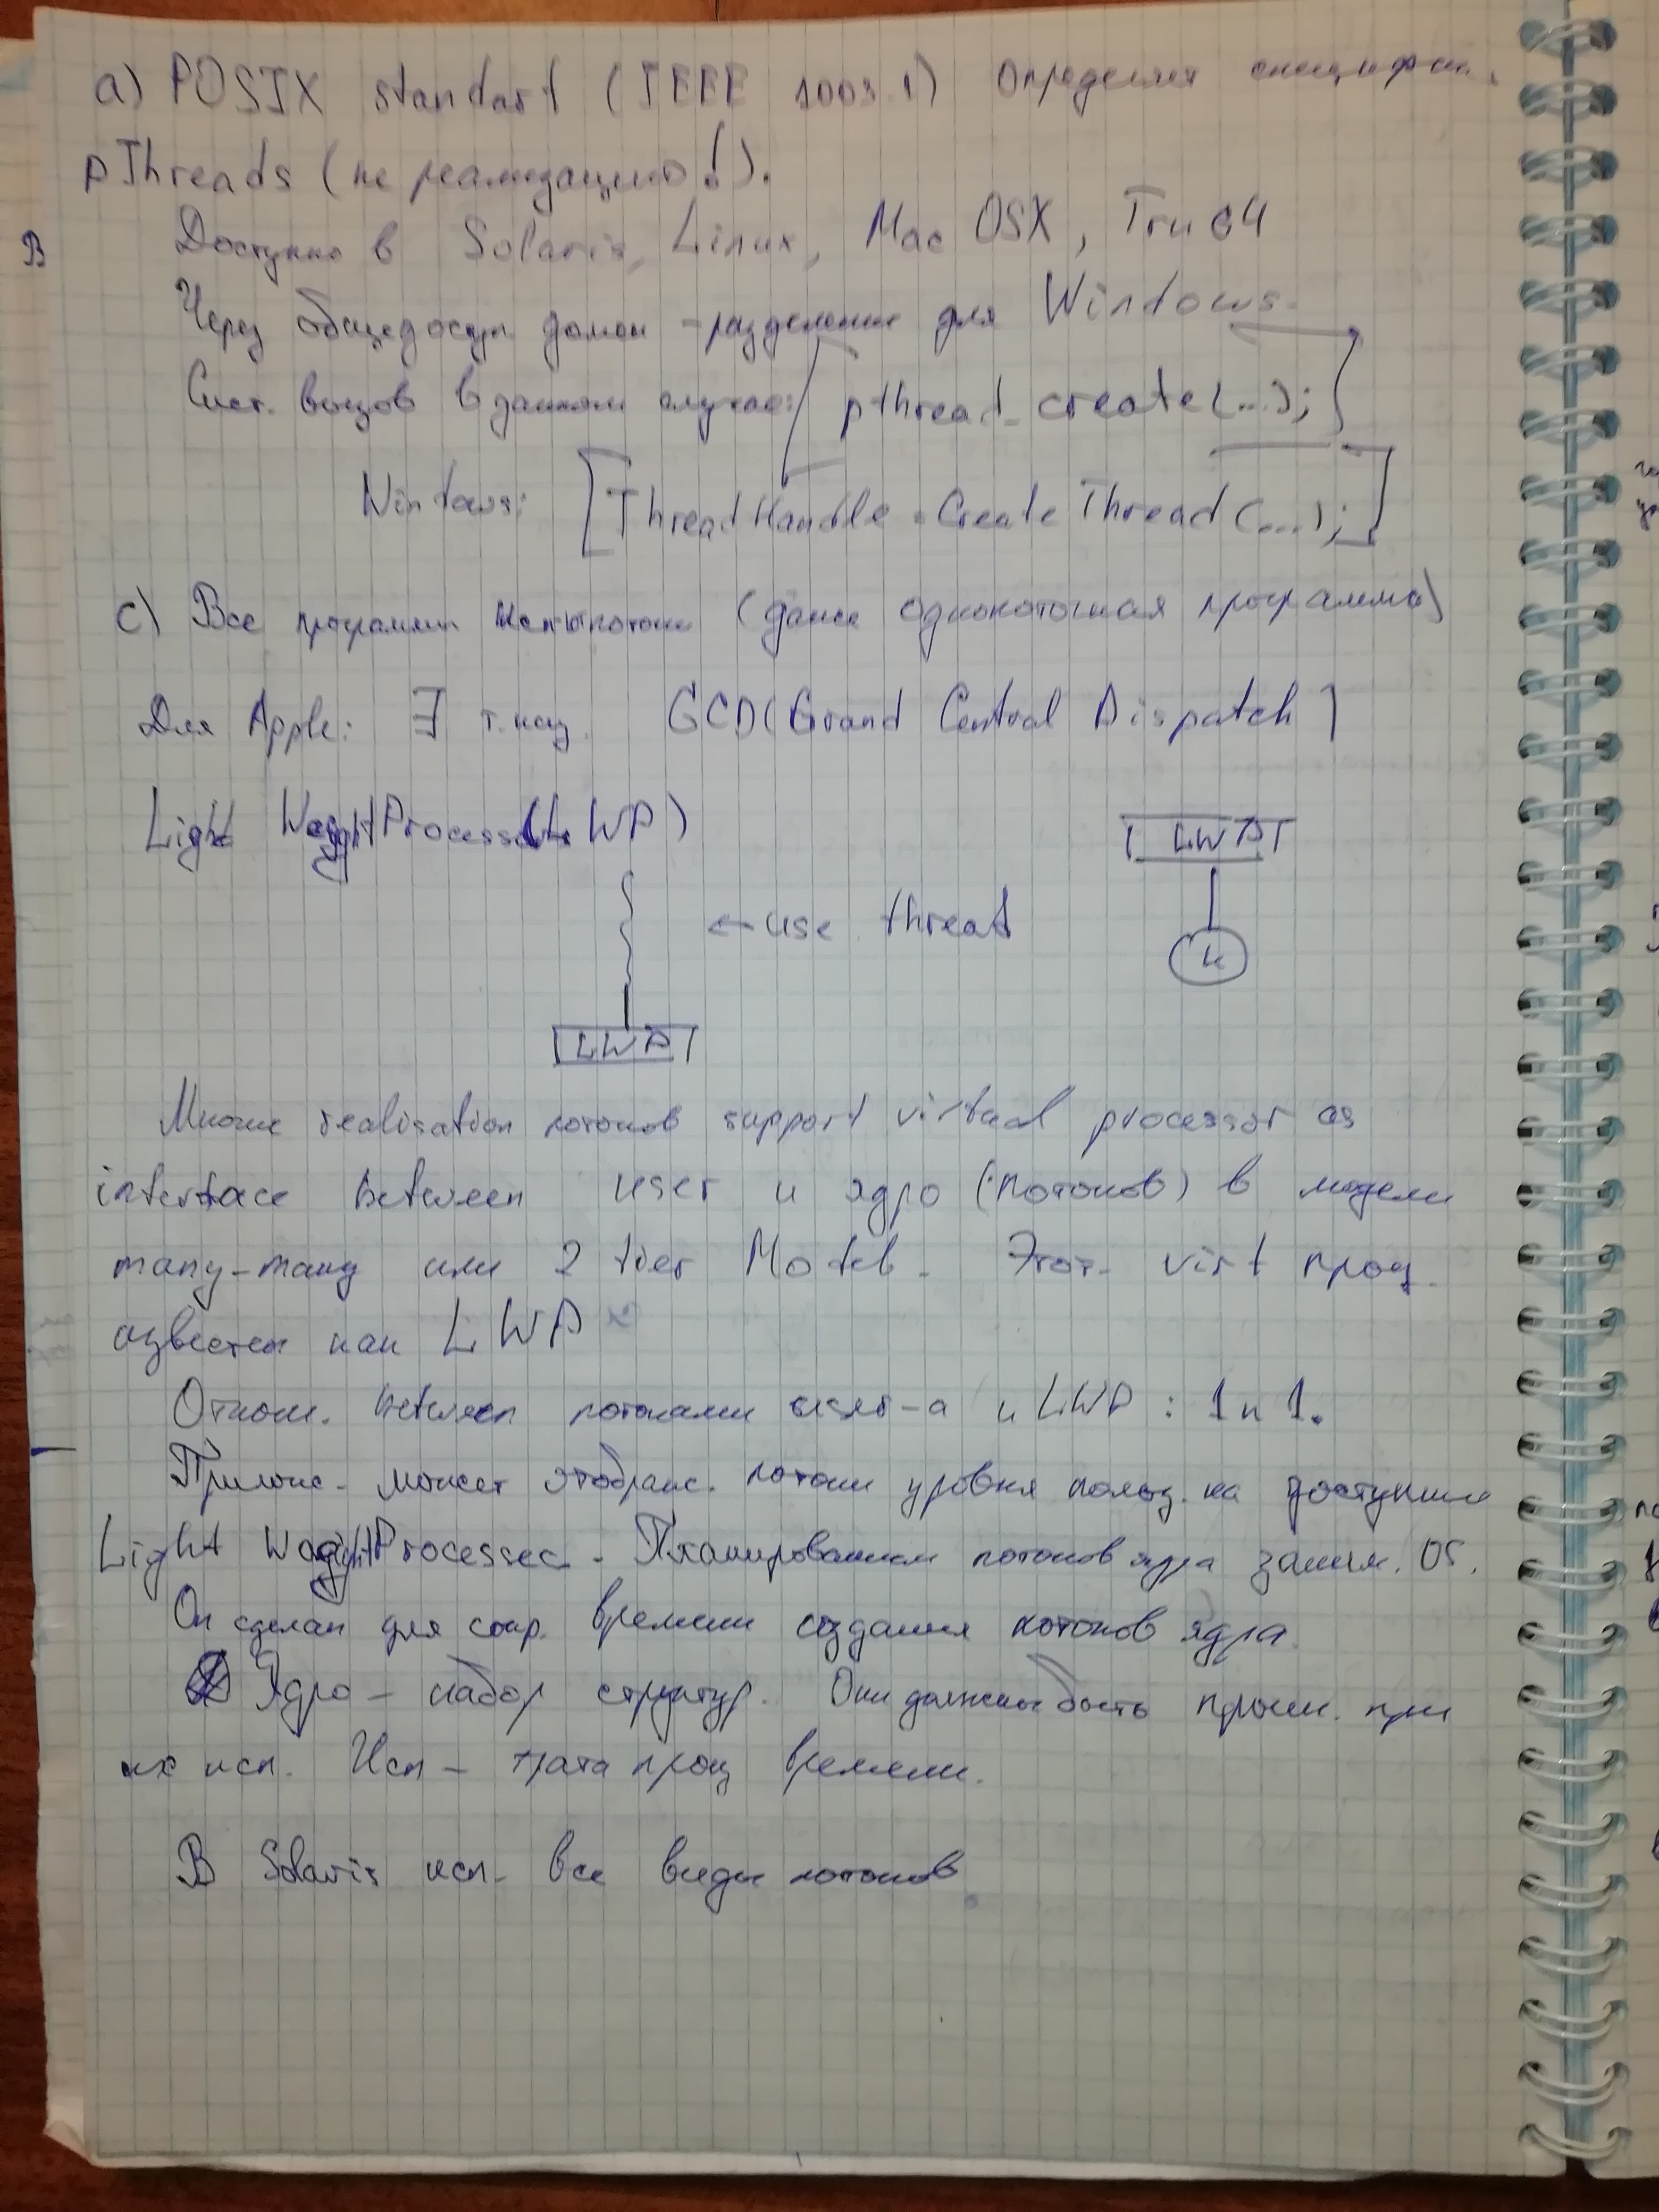 a) POSIX standart (IEEE 1003.1) Определяет специфик.
pThreads (не реализацию!).
В
Доступно в Solaris, Linux, Mac OSX, Tru 64
Через общедоступ домен - разделение для Windows.
Сист. вызов в данном случае: pthread_create(...);
Windows: [ThreadHandle = CreateThread(...);]
c) Все программы (даже однопоточная программа)
Для Apple: ∃ т.наз. GCD (Grand Central Dispatch)
Light WeightProcess (LWP)
LWP
← use thread
k
LWP
Многие realisation потоков support virtual processor as
interface between user и ядро (потоков) в модели
many-many или 2 tier Model. Этот virt проц.
известен как LWP
Отнош. between потоками user-а и LWP : 1 к 1.
Прилож. может отображ. потоки уровня польз. на доступные
Light WeightProcessес. Планированием потоков ядра заним. OS.
Он сделан для сокр. времени создания потоков ядра.
Ядро - набор структур. Они должны быть при
их исп. Исп - трата проц времени.
В Solaris исп. все виды потоков.